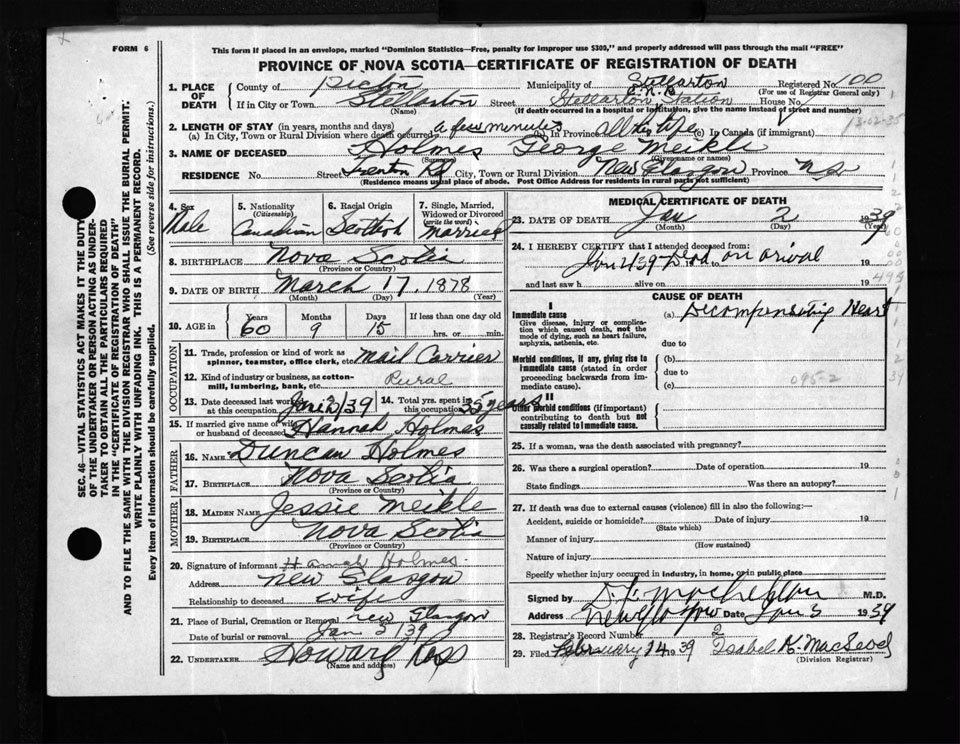 FORM 6
This form if placed in an envelope, marked "Dominion Statistics—Free, penalty for improper use $300," and properly addressed will pass through the mail "FREE"
PROVINCE OF NOVA SCOTIA—CERTIFICATE OF REGISTRATION OF DEATH
1. PLACE OF DEATH
County of Pictou Municipality of Stellarton Registered No. 100
(For use of Registrar General only)
If in City or Town Stellarton Street Stellarton Station House No.
(Name) (If death occurred in a hospital or institution, give the name instead of street and number)
13-02-35
2. LENGTH OF STAY (in years, months and days)
(a) In City, Town or Rural Division where death occurred a few minutes (b) In Province all his life (c) In Canada (if immigrant)
3. NAME OF DECEASED Holmes George Meikle
(Surname) (Given name or names)
RESIDENCE No. Street Trenton Rd City, Town or Rural Division New Glasgow Province N.S
(Residence means usual place of abode. Post Office Address for residents in rural parts not sufficient)
4. Sex Male
5. Nationality (Citizenship) Canadian
6. Racial Origin Scottish
7. Single, Married, Widowed or Divorced (write the word) Married
8. BIRTHPLACE Nova Scotia
(Province or Country)
9. DATE OF BIRTH March 17, 1878
(Month) (Day) (Year)
10. AGE in Years 60 Months 9 Days 15 If less than one day
hrs. or min.
OCCUPATION
11. Trade, profession or kind of work as spinner, teamster, office clerk, etc. Mail Carrier
12. Kind of industry or business, as cotton-mill, lumbering, bank, etc. Rural
13. Date deceased last worked at this occupation Jan 2/39
14. Total yrs. spent in this occupation 35 years
15. If married give name of wife or husband of deceased Hannah Holmes
FATHER
16. NAME Duncan Holmes
17. BIRTHPLACE Nova Scotia
(Province or Country)
MOTHER
18. MAIDEN NAME Jessie Meikle
19. BIRTHPLACE Nova Scotia
(Province or Country)
20. Signature of informant Hannah Holmes
Address New Glasgow
Relationship to deceased wife
21. Place of Burial, Cremation or Removal New Glasgow
Date of burial or removal Jan 3/39
22. UNDERTAKER Howard Ross
(Name and address)
MEDICAL CERTIFICATE OF DEATH
23. DATE OF DEATH Jan 2 1939
(Month) (Day)
24. I HEREBY CERTIFY that I attended deceased from:
Jan 2 39 Dead on arival 19
and last saw h alive on 19
CAUSE OF DEATH
I
Immediate cause (a) Decompensating Heart
Give disease, injury or complication which caused death, not the mode of dying, such as heart failure, asphyxia, asthenia, etc.
due to
Morbid conditions, if any, giving rise to immediate cause (stated in order proceeding backwards from immediate cause).
(b)
due to
(c)
095-2
II
Other morbid conditions (if important) contributing to death but not causally related to immediate cause.
25. If a woman, was the death associated with pregnancy?
26. Was there a surgical operation? Date of operation 19
State findings Was there an autopsy?
27. If death was due to external causes (violence) fill in also the following:—
Accident, suicide or homicide? Date of injury 19
(State which)
Manner of injury
(How sustained)
Nature of injury
Specify whether injury occurred in industry, in home, or in public place
Signed by M.D.
Address New Glasgow Date Jan 3 1939
28. Registrar's Record Number 2
29. Filed February 14 1939 Isabel K. MacLeod
(Division Registrar)
SEC. 46—VITAL STATISTICS ACT MAKES IT THE DUTY OF THE UNDERTAKER OR PERSON ACTING AS UNDERTAKER TO OBTAIN ALL THE PARTICULARS REQUIRED IN THE "CERTIFICATE OF REGISTRATION OF DEATH" AND TO FILE THE SAME WITH THE DIVISION REGISTRAR WHO SHALL ISSUE THE BURIAL PERMIT.
WRITE PLAINLY WITH UNFADING INK. THIS IS A PERMANENT RECORD.
Every item of information should be carefully supplied. (See reverse side for instructions.)